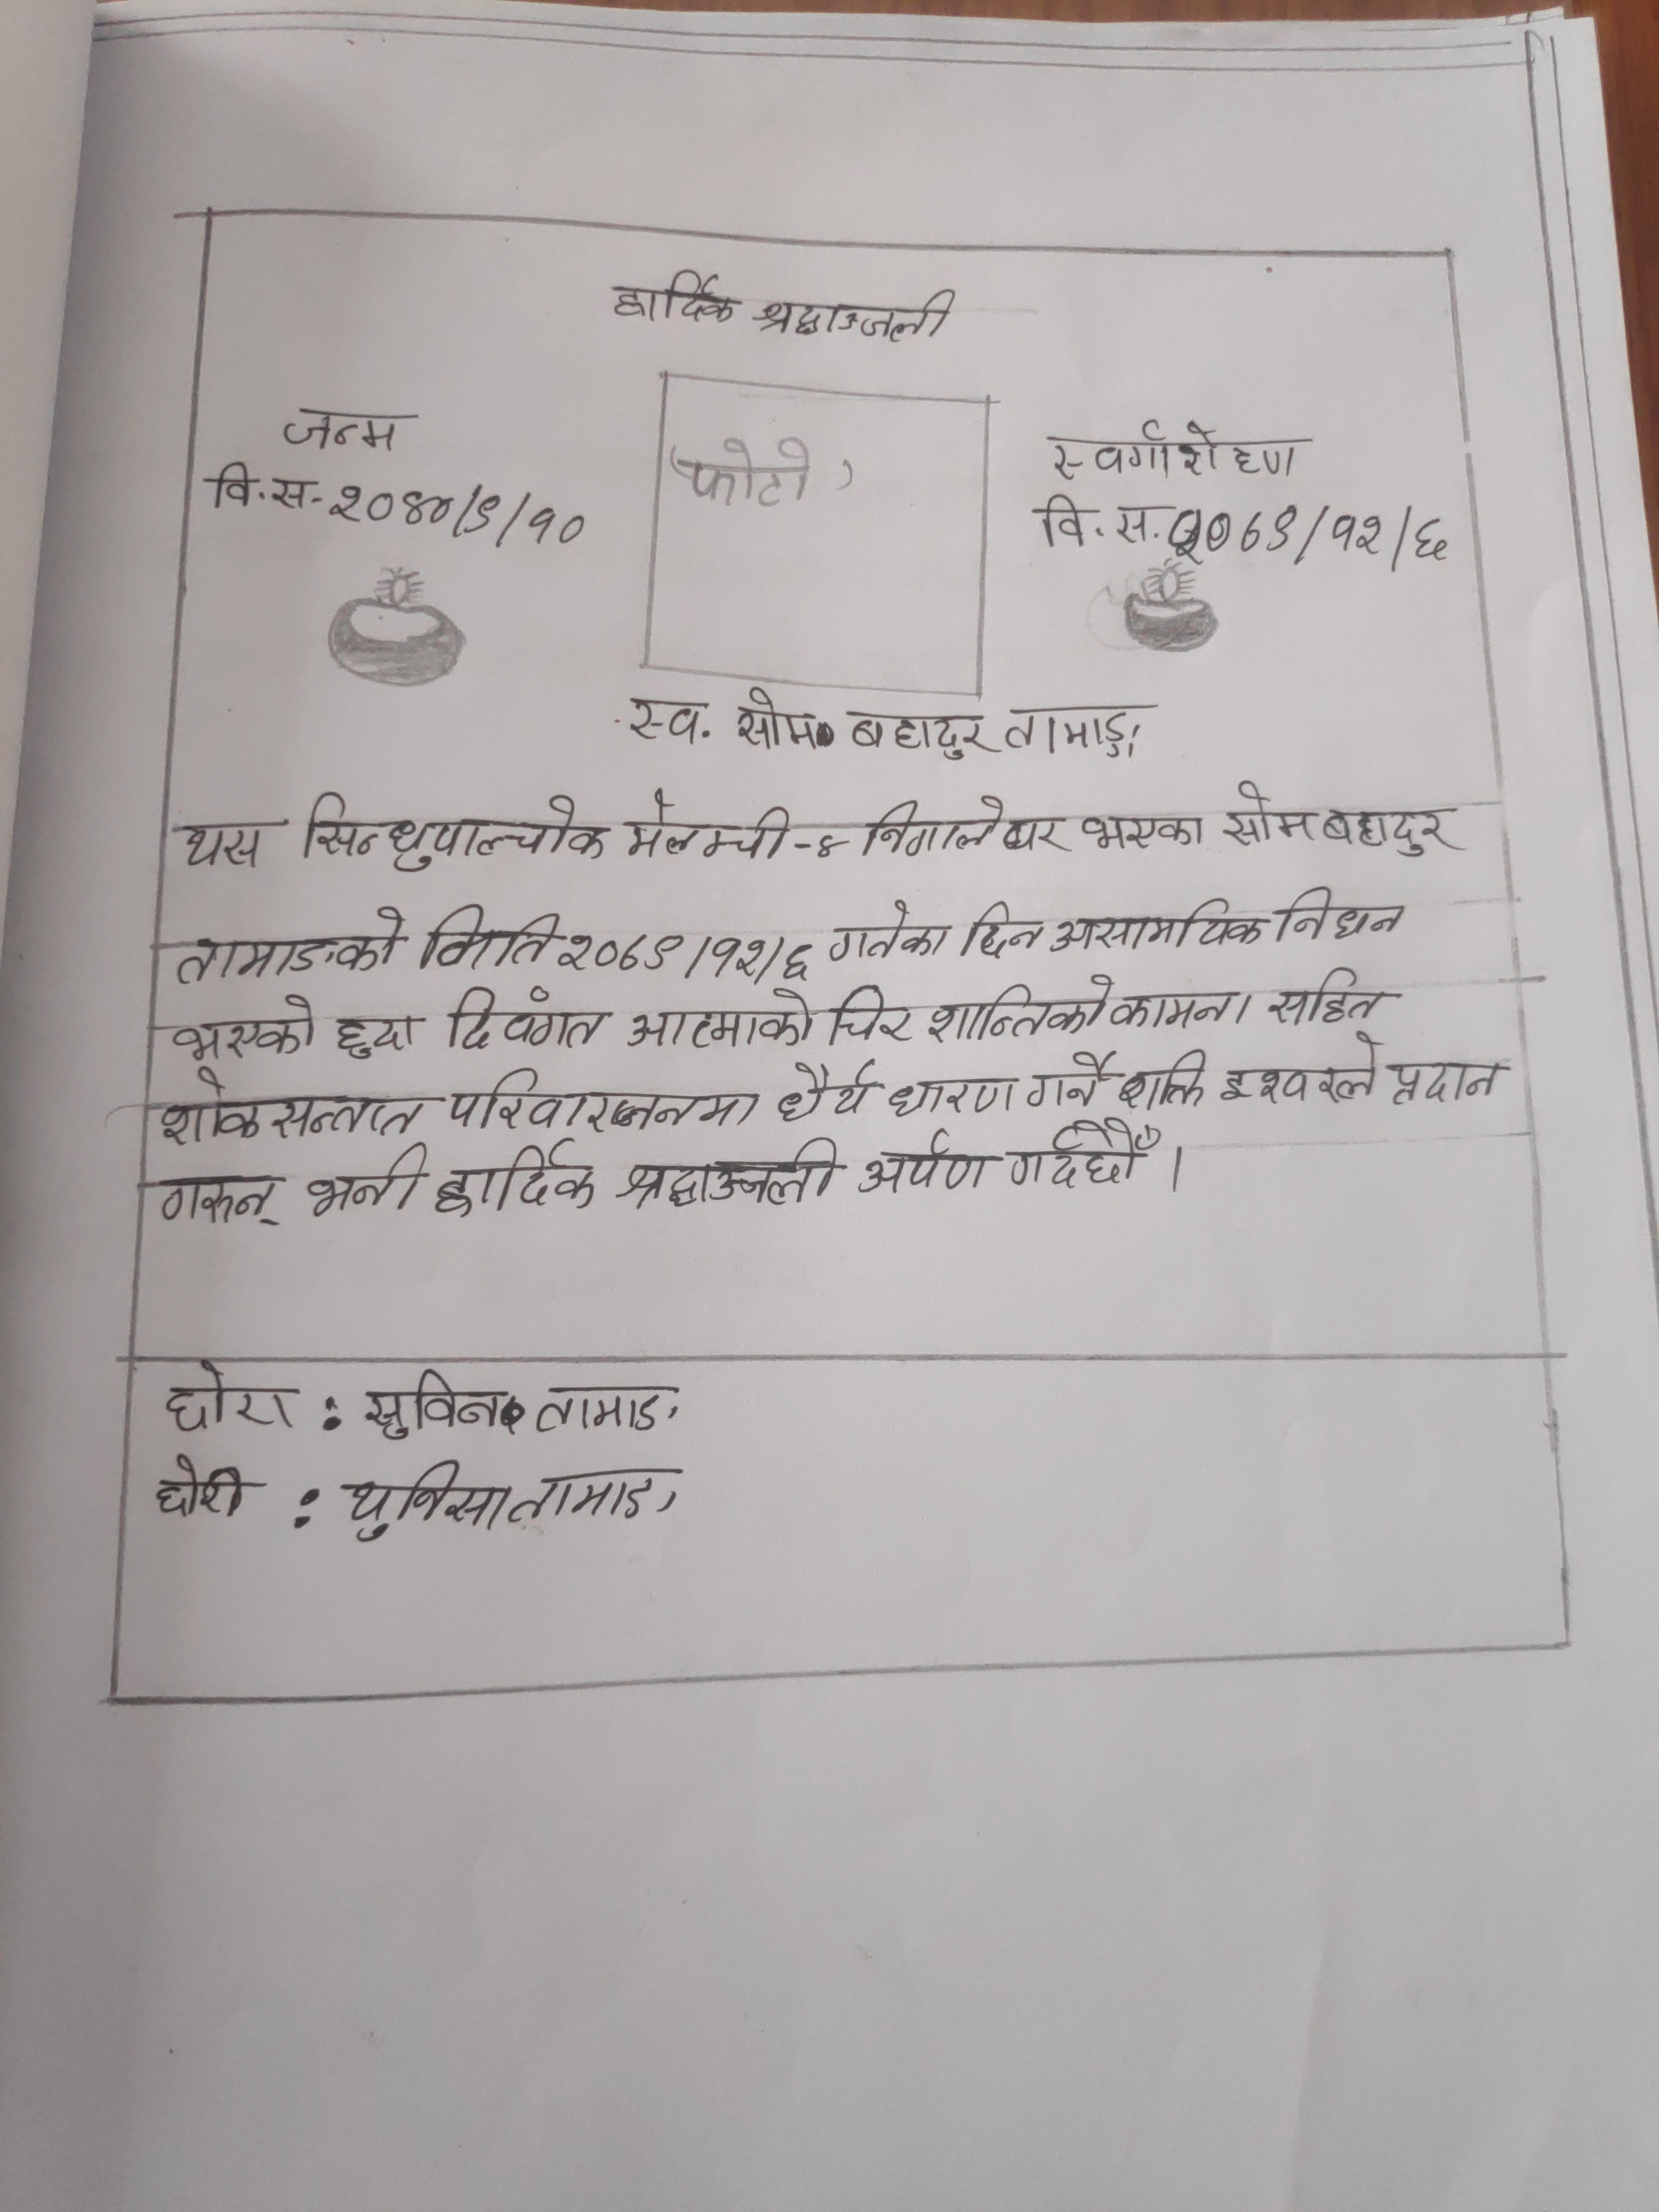 हार्दिक श्रद्धाञ्जली
जन्म
वि.स-२०४०/९/१०
फोटो
स्वर्गारोहण
वि.स.२०७९/१२/६
स्व. सोम बहादुर तामाङ
यस सिन्धुपाल्चोक मेलम्ची-४ निगालेघर भएका सोम बहादुर
तामाङको मिति २०७९/१२/६ गतेका दिन असामयिक निधन
भएको हुदा दिवंगत आत्माको चिर शान्तिको कामना सहित
शोक सन्तप्त परिवारजनमा धैर्य धारण गर्ने शक्ति इश्वरले प्रदान
गरून् भनी हार्दिक श्रद्धाञ्जली अर्पण गर्दछौँ ।
छोरा : सुविन तामाङ
छोरी : युनिसा तामाङ